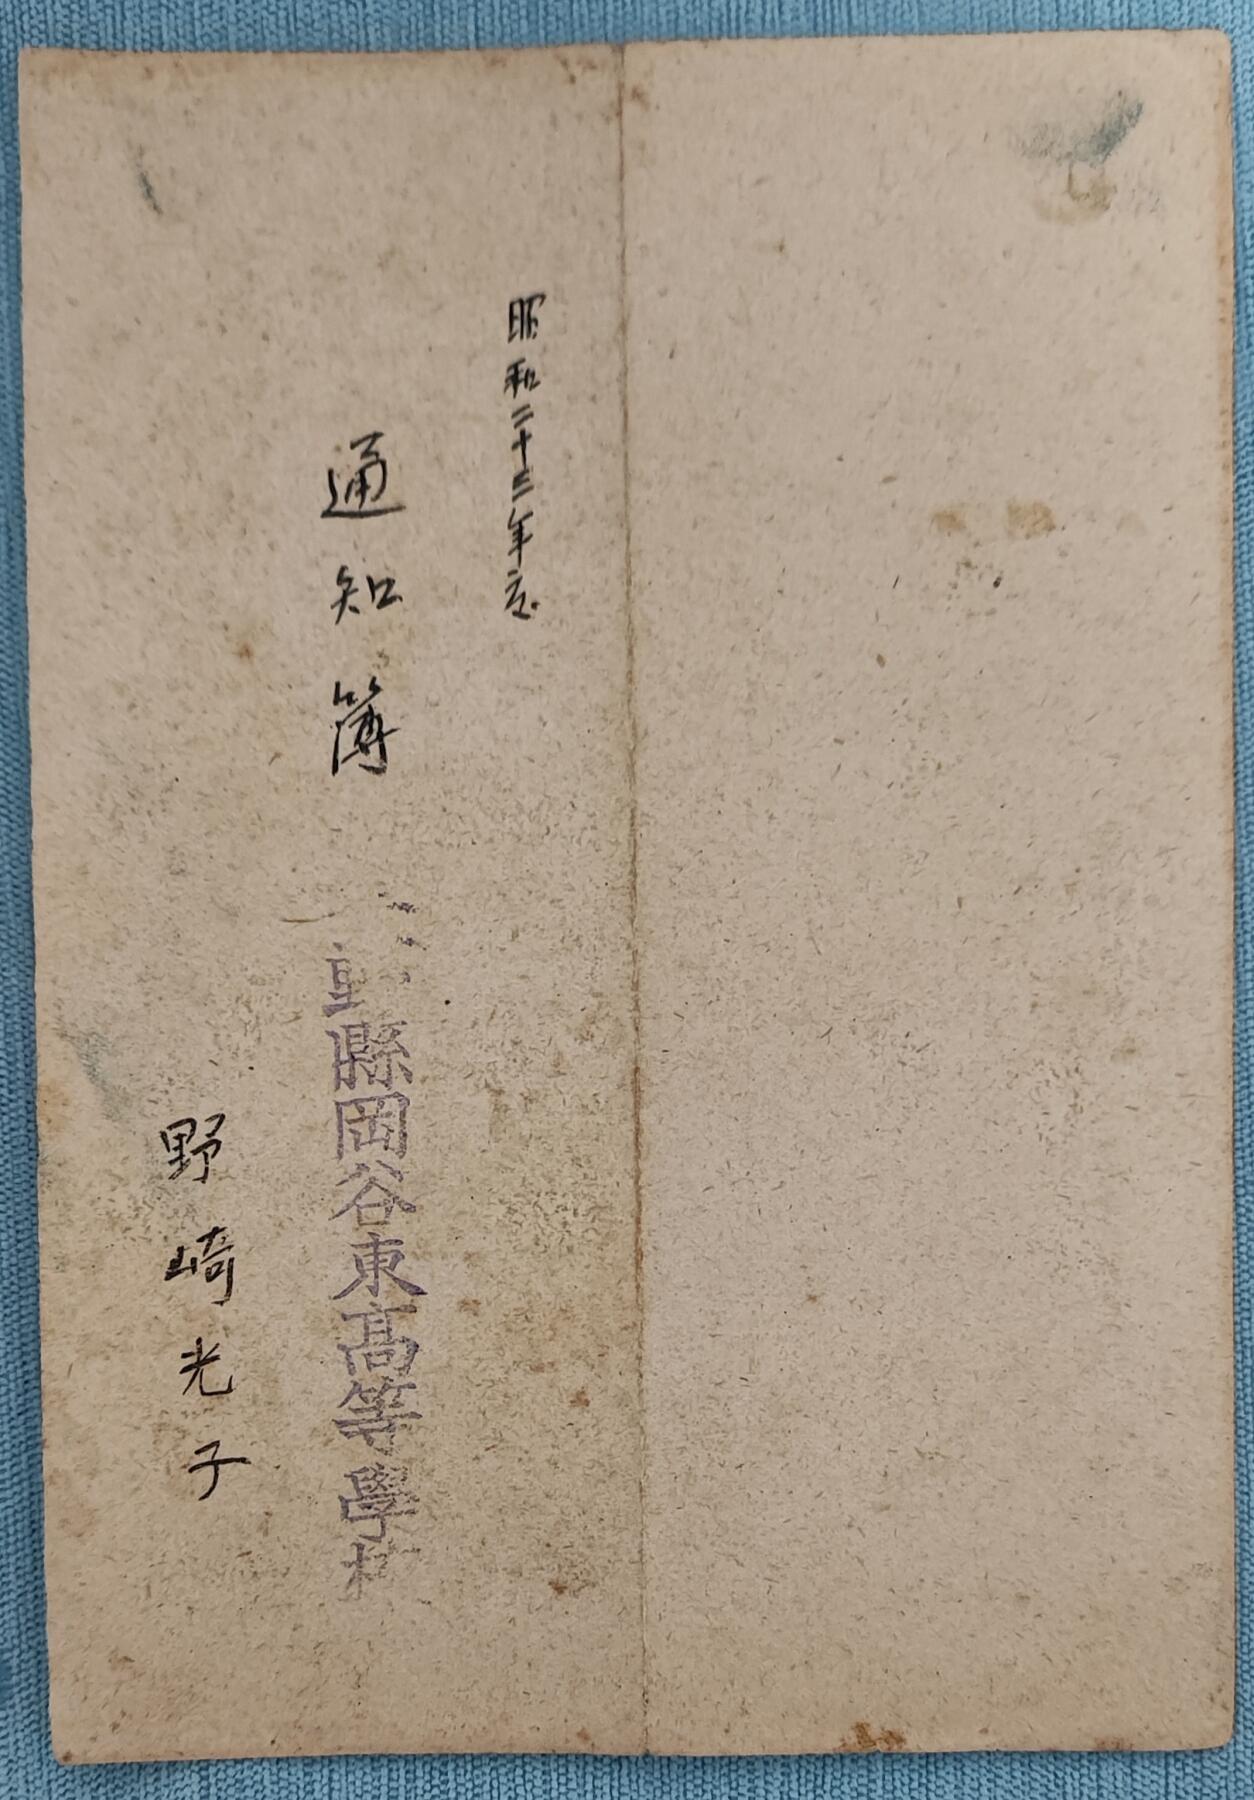 昭和二十三年度
通知簿
縣岡谷東高等學校
野崎光子